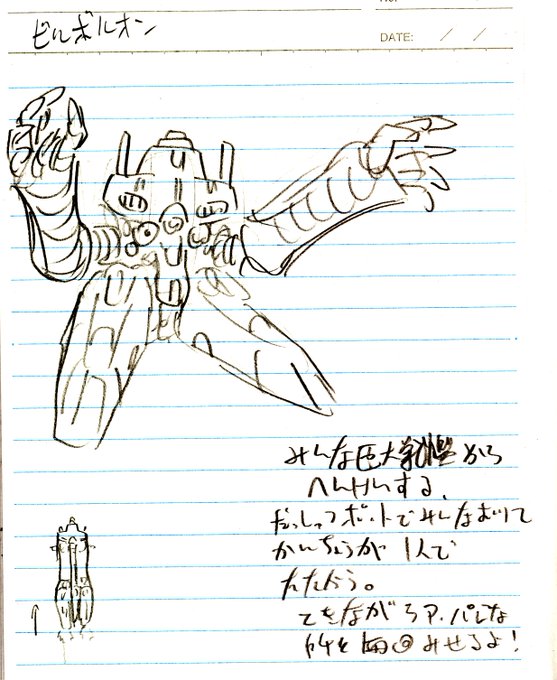 ビルボルオン
DATE: / /
みんな巨大戦艦から
へんけいする。
だっしゅつポットでみんなおりて
かんちょうが 1人で
たたかう。
てきながらアッパレな
所を毎回みせるよ!